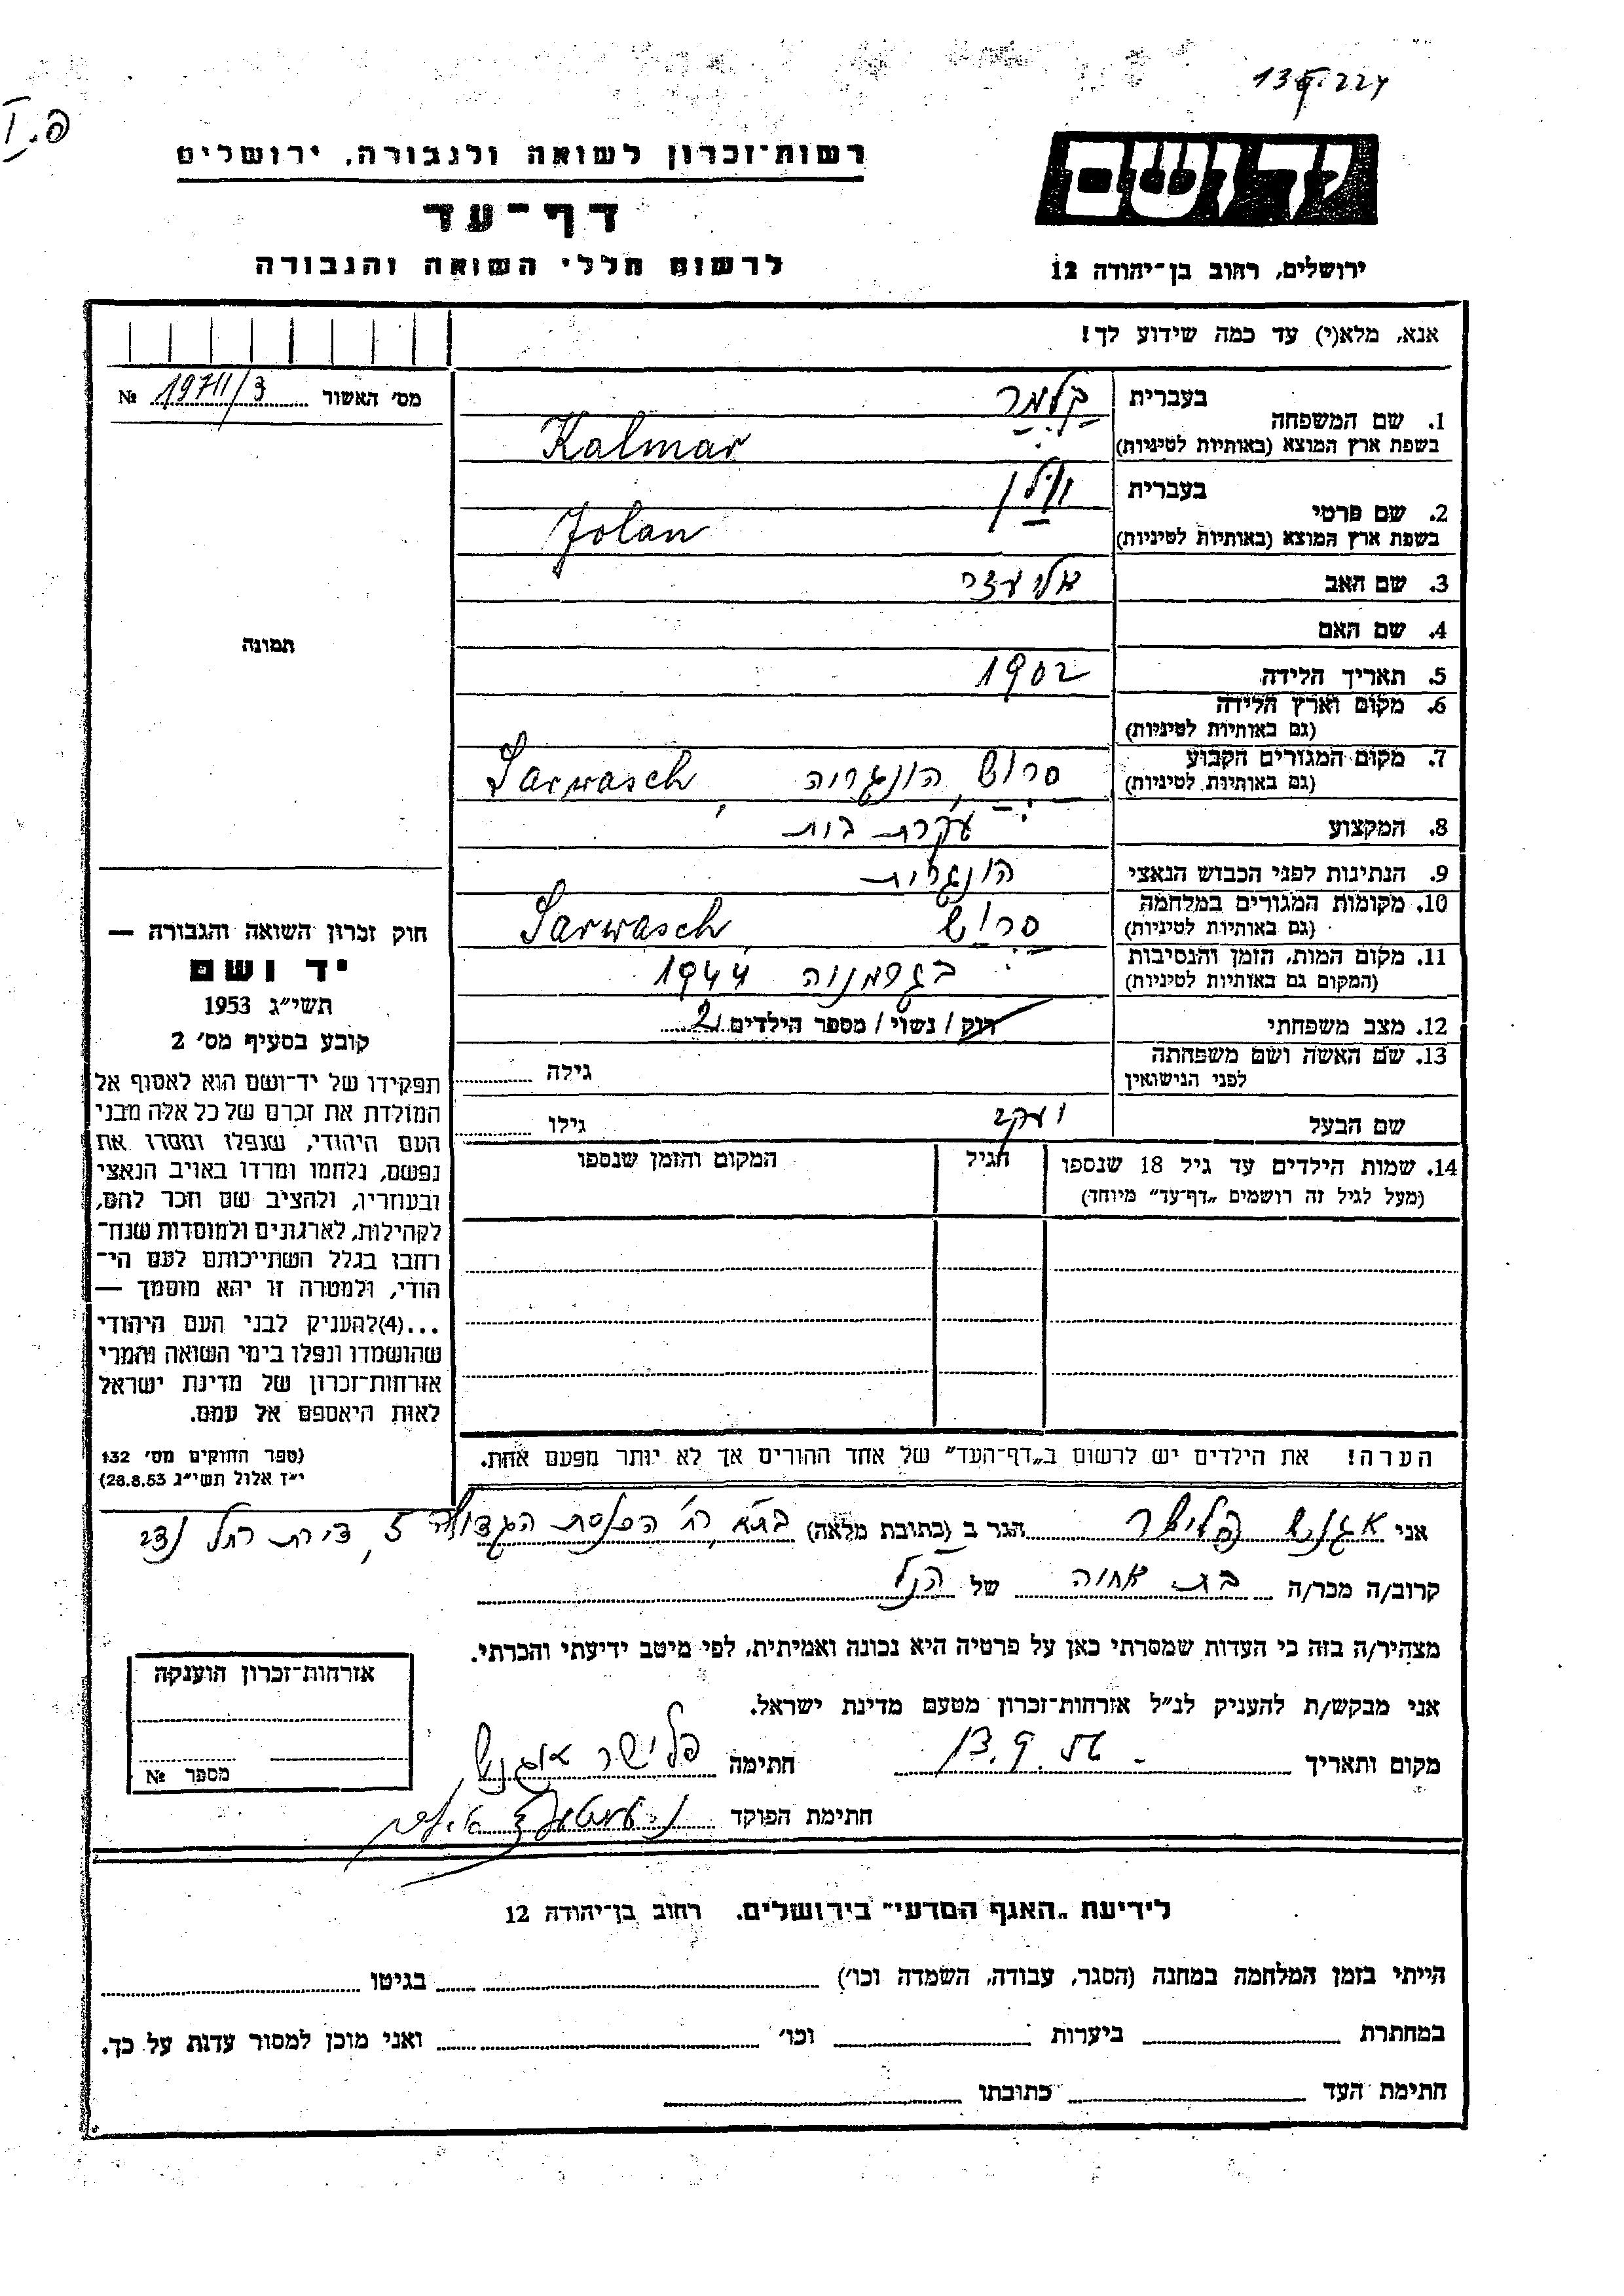 פ.I
רשות־זכרון לשואה ולגבורה, ירושלים
דף־עד
לרשום חללי השואה והגבורה
יד ושם
ירושלים, רחוב בן־יהודה 12
אנא, מלא(י) עד כמה שידוע לך!
מס׳ האשור 19711/3 №
תמונה
1. שם המשפחה
בעברית קלמר
בשפת ארץ המוצא (באותיות לטיניות) Kalmar
2. שם פרטי
בעברית יולן
בשפת ארץ המוצא (באותיות לטיניות) Jolan
3. שם האב אליעזר
4. שם האם
5. תאריך הלידה 1902
6. מקום וארץ הלידה
(גם באותיות לטיניות)
7. מקום המגורים הקבוע סרוש, הונגריה, Sarwasch
(גם באותיות לטיניות)
8. המקצוע עקרת בית
9. הנתינות לפני הכבוש הנאצי הונגרית
10. מקומות המגורים במלחמה סרוש Sarwasch
(גם באותיות לטיניות)
11. מקום המות, הזמן והנסיבות בגרמניה 1944
(המקום גם באותיות לטיניות)
12. מצב משפחתי רוק / נשוי / מספר הילדים 2
13. שם האשה ושם משפחתה גילה
לפני הנישואין
שם הבעל יעקב גילו
14. שמות הילדים עד גיל 18 שנספו הגיל המקום והזמן שנספו
(מעל לגיל זה רושמים „דף־עד״ מיוחד)
הערה! את הילדים יש לרשום ב„דף־העד״ של אחד ההורים אך לא יותר מפעם אחת.
חוק זכרון השואה והגבורה —
יד ושם
תשי״ג 1953
קובע בסעיף מס׳ 2
תפקידו של יד־ושם הוא לאסוף אל
המולדת את זכרם של כל אלה מבני
העם היהודי, שנפלו ומסרו את
נפשם, נלחמו ומרדו באויב הנאצי
ובעוזריו, ולהציב שם וזכר להם,
לקהילות, לארגונים ולמוסדות שנח־
רחבו בגלל השתייכותם לעם הי־
הודי, ולמטרה זו יהא מוסמך —
...(4)להעניק לבני העם היהודי
שהושמדו ונפלו בימי השואה והמרי
אזרחות־זכרון של מדינת ישראל
לאות היאספם אל עמם.
(ספר החוקים מס׳ 132
י״ז אלול תשי״ג 28.8.53)
אני אגנש פלישר הגר ב (כתובת מלאה) בת״א, רח׳ הכנסת הגדולה 5, דירת רחל
קרוב/ה מכר/ה בת אחיה של הנ״ל
מצהיר/ה בזה כי העדות שמסרתי כאן על פרטיה היא נכונה ואמיתית, לפי מיטב ידיעתי והכרתי.
אני מבקש/ת להעניק לנ״ל אזרחות־זכרון מטעם מדינת ישראל.
מקום ותאריך חתימה פלישר אגנש
חתימת הפוקד
אזרחות־זכרון הוענקה
מספר №
לידיעת „האגף המדעי״ בירושלים. רחוב בן־יהודה 12
הייתי בזמן המלחמה במחנה (הסגר, עבודה, השמדה וכו׳) בגיטו
במחתרת ביערות וכו׳ ואני מוכן למסור עדות על כך.
חתימת העד כתובתו